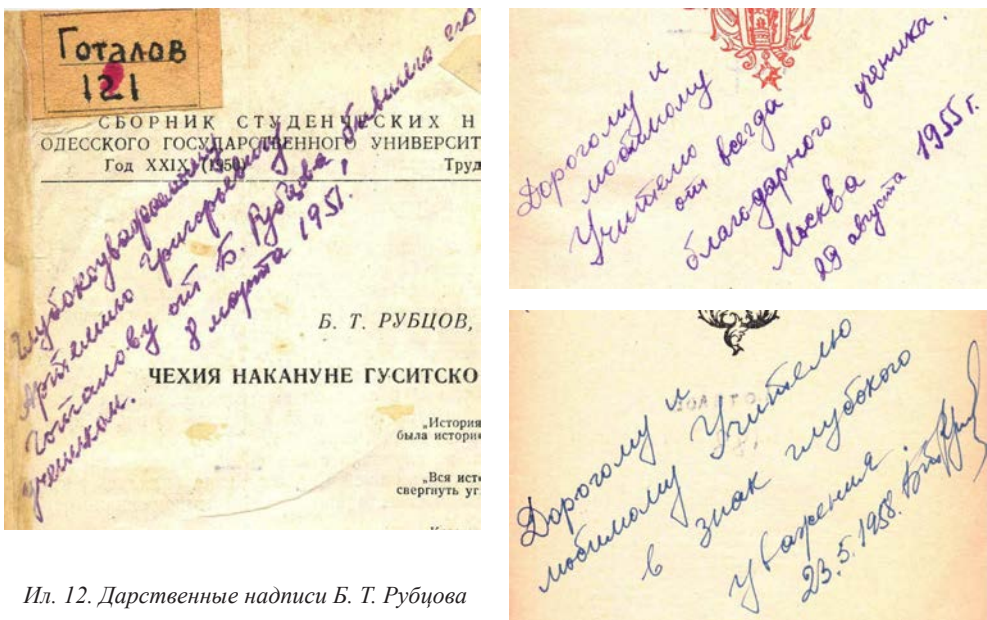 Готалов
121
СБОРНИК СТУДЕНЧЕСКИХ Н
ОДЕССКОГО ГОСУДАРСТВЕННОГО УНИВЕРСИТ
Год XXIX (1950)
Труд
Глубокоуважаемому
Артемию Григорьевичу
Готалову от Б. Рубцова, бывшего его
учеником.
8 марта 1951.
Б. Т. РУБЦОВ,
ЧЕХИЯ НАКАНУНЕ ГУСИТСКО
„История
была истори
„Вся ист
свергнуть уг
Дорогому и
любимому
Учителю
от всегда
благодарного ученика.
Москва
29 августа 1955 г.
Дорогому и
любимому Учителю
в знак глубокого
уважения.
23.5.1958.
Ил. 12. Дарственные надписи Б. Т. Рубцова